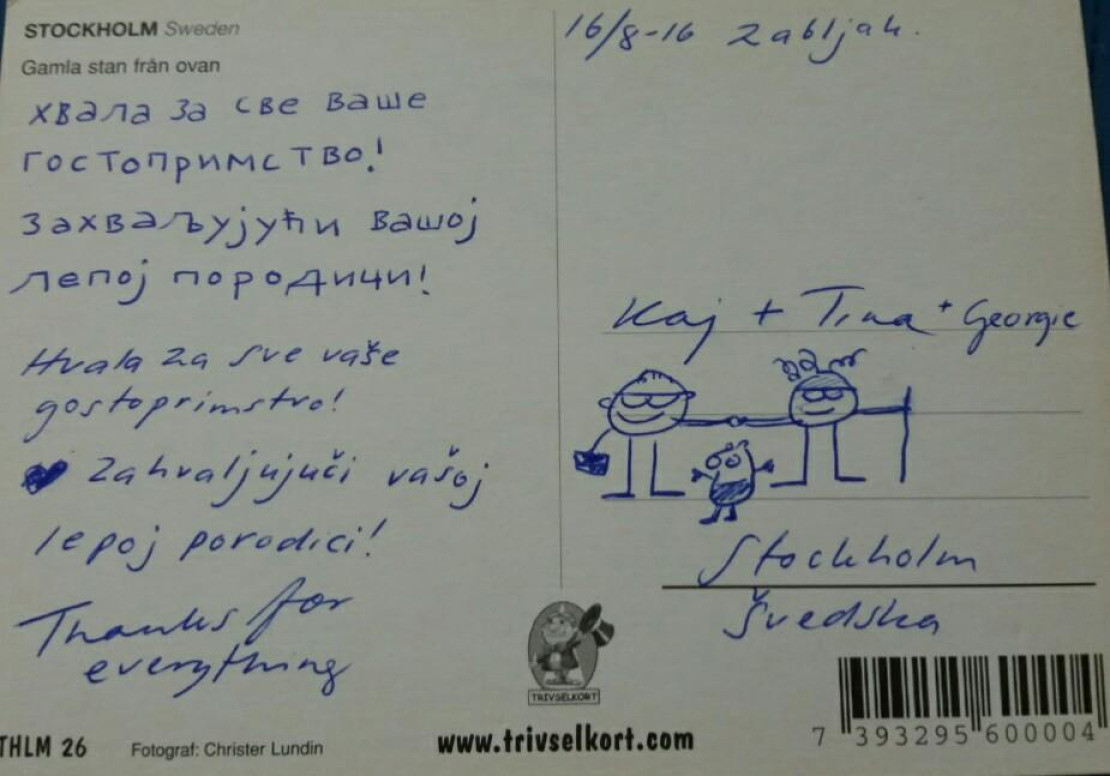 STOCKHOLM Sweden
Gamla stan från ovan
хвала за све ваше
гостопримство!
захваљујући вашој
лепој породици!
Hvala za sve vaše
gostoprimstvo!
Zahvaljujuči vašoj
lepoj porodici!
Thanks for
everything
THLM 26
Fotograf: Christer Lundin
16/8-16 Zabljak.
Kaj + Tina + Georgie
Stockholm
Švedska
TRIVSELKORT
www.trivselkort.com
7 393295 600004